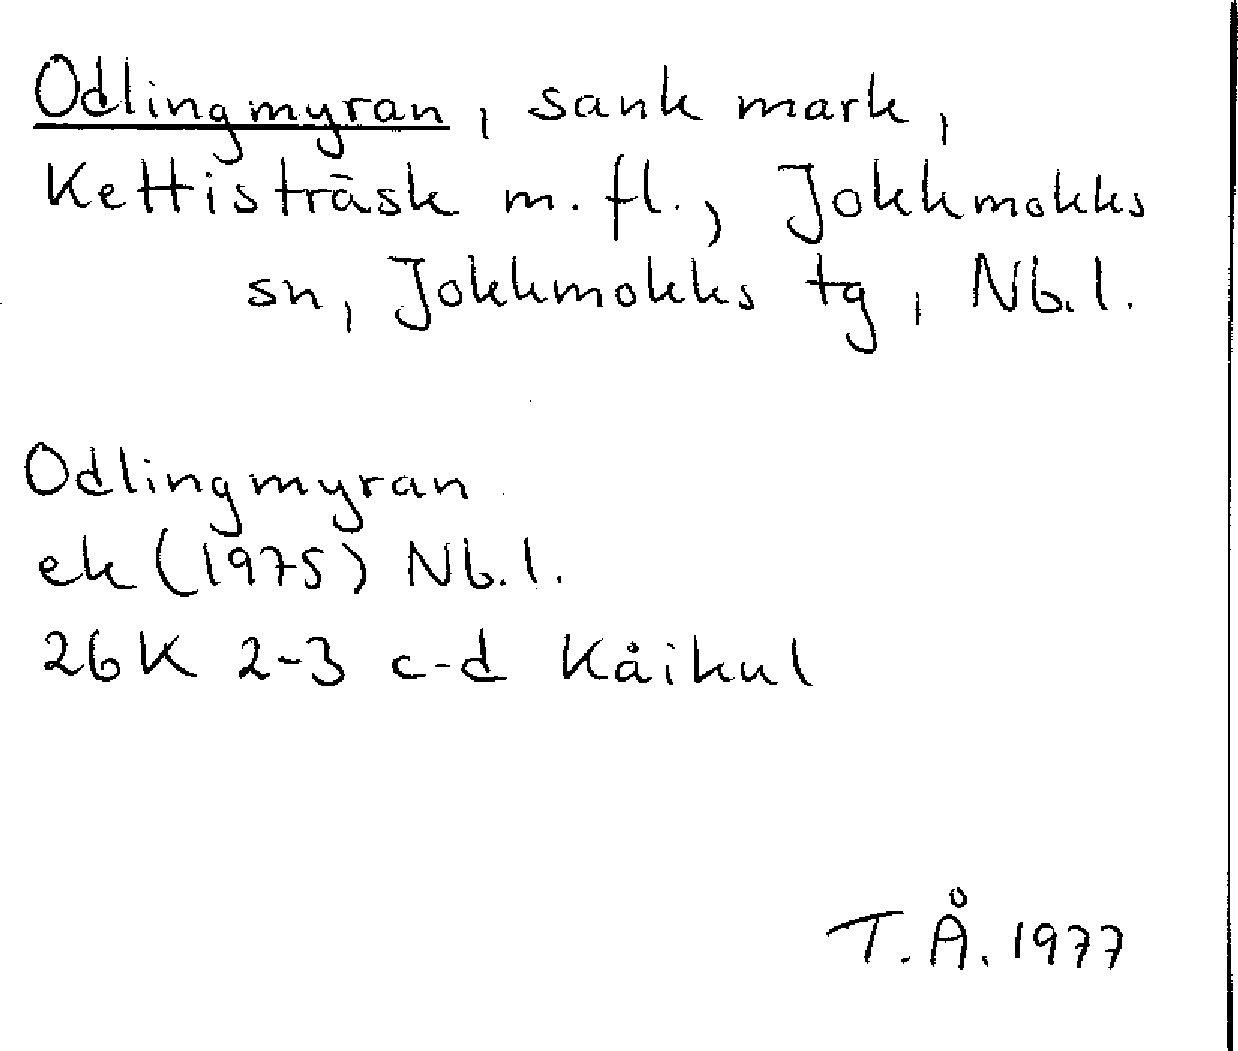 Odlingmyran, sank mark,
Kettisträsk m. fl., Jokkmokks
sn, Jokkmokks tg, Nb. l.
Odlingmyran
ek (1975) Nb. l.
26K 2-3 c-d Kåikul
T. Å. 1977